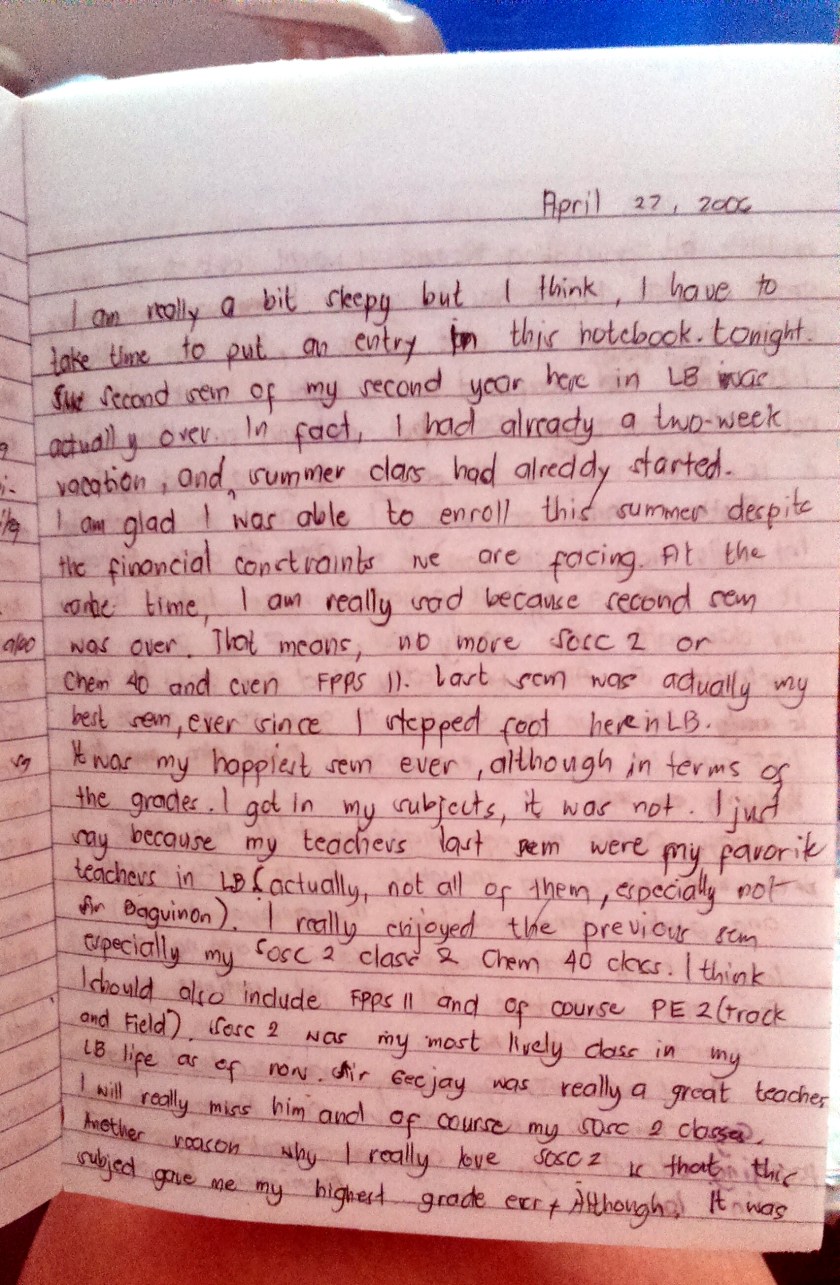 April 27, 2006
I am really a bit sleepy but I think, I have to
take time to put an entry in this notebook. tonight.
second sem of my second year here in LB was
actually over. In fact, I had already a two-week
vacation, and summer class had alreddy started.
I am glad I was able to enroll this summer despite
the financial constraints we are facing. At the
same time, I am really sad because second sem
also was over. That means, no more Sosc 2 or
Chem 40 and even FPPS 11. Last sem was actually my
best sem, ever since I stepped foot here in LB.
It was my happiest sem ever, although in terms of
the grades. I got in my subjects, it was not. I just
say because my teachers last sem were my favorite
teachers in LB (actually, not all of them, especially not
Sir Baguinon). I really enjoyed the previous sem
especially my Sosc 2 class & Chem 40 class. I think
I should also include FPPS 11 and of course PE 2 (track
and Field). Sosc 2 was my most lively class in my
LB life as of now. Sir Geejay was really a great teacher
I will really miss him and of course my Sosc 2 classes.
Another reason why I really love Sosc 2 is that this
subject gave me my highest grade ever. Although, it was